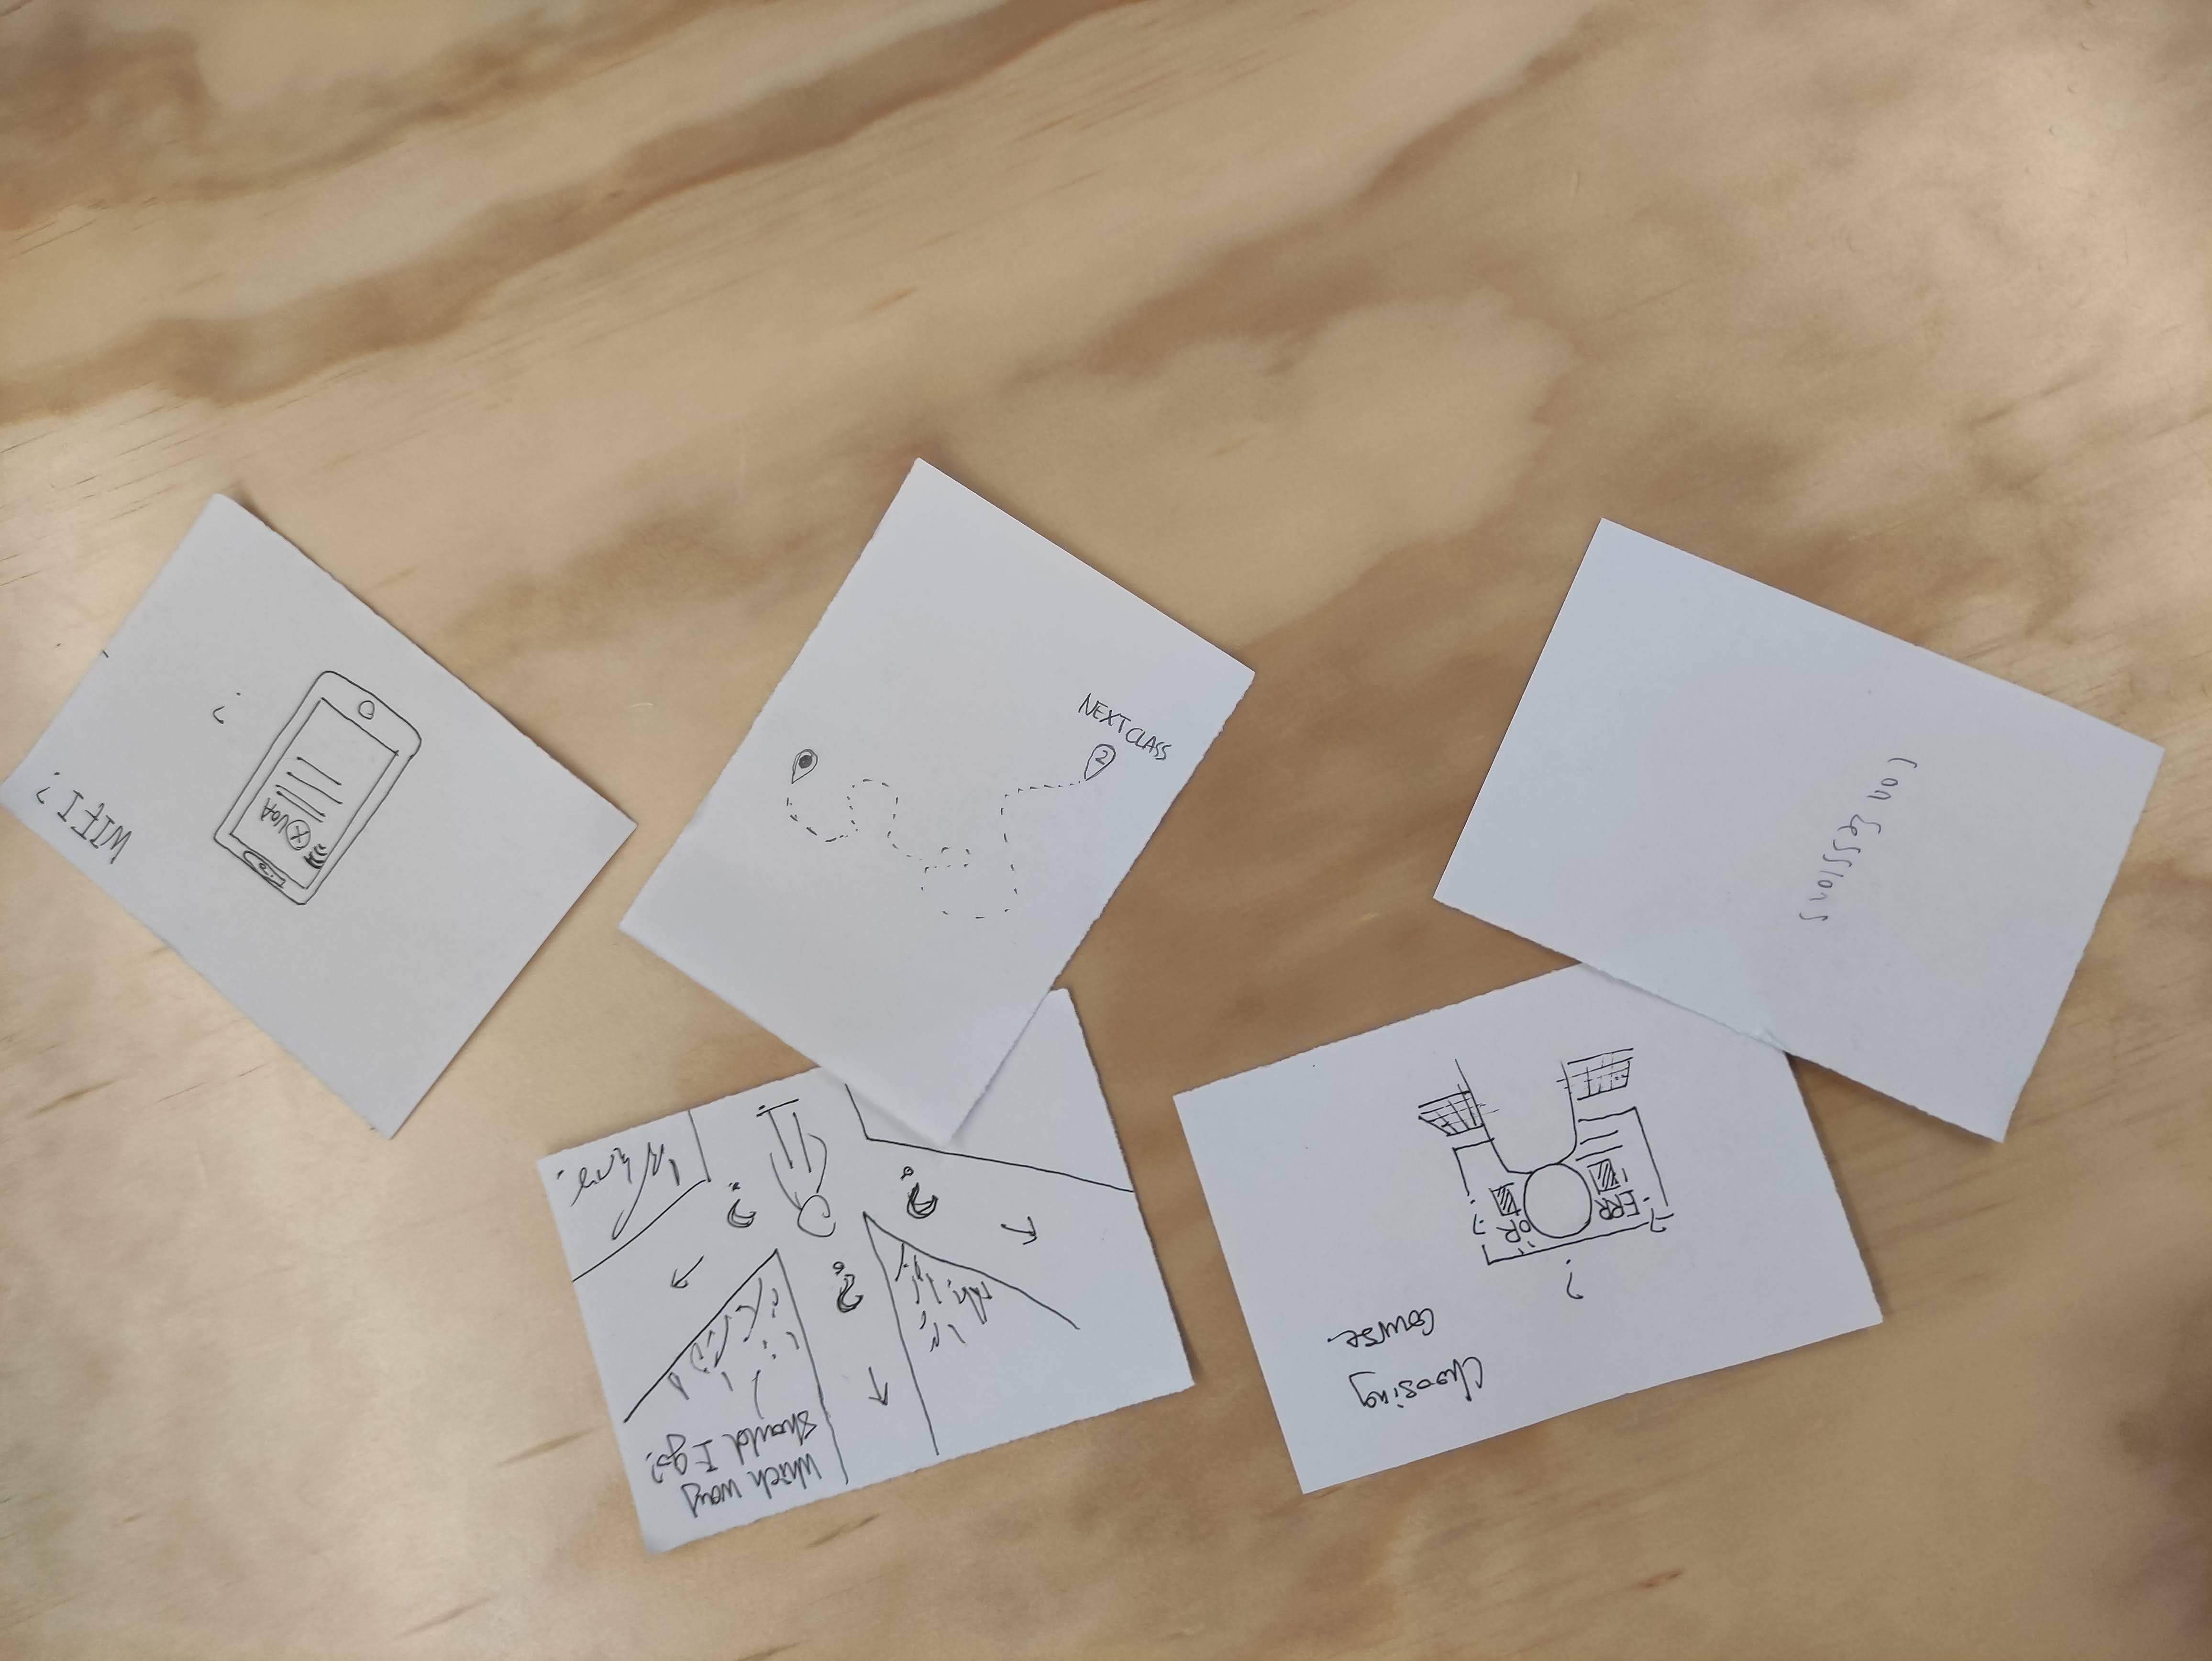 WIFI?
UOA
?
Which way
Should I go?
?
?
?
NEXT CLASS
2
Choosing
Course.
?
?
ERR
OR
?
Concessions